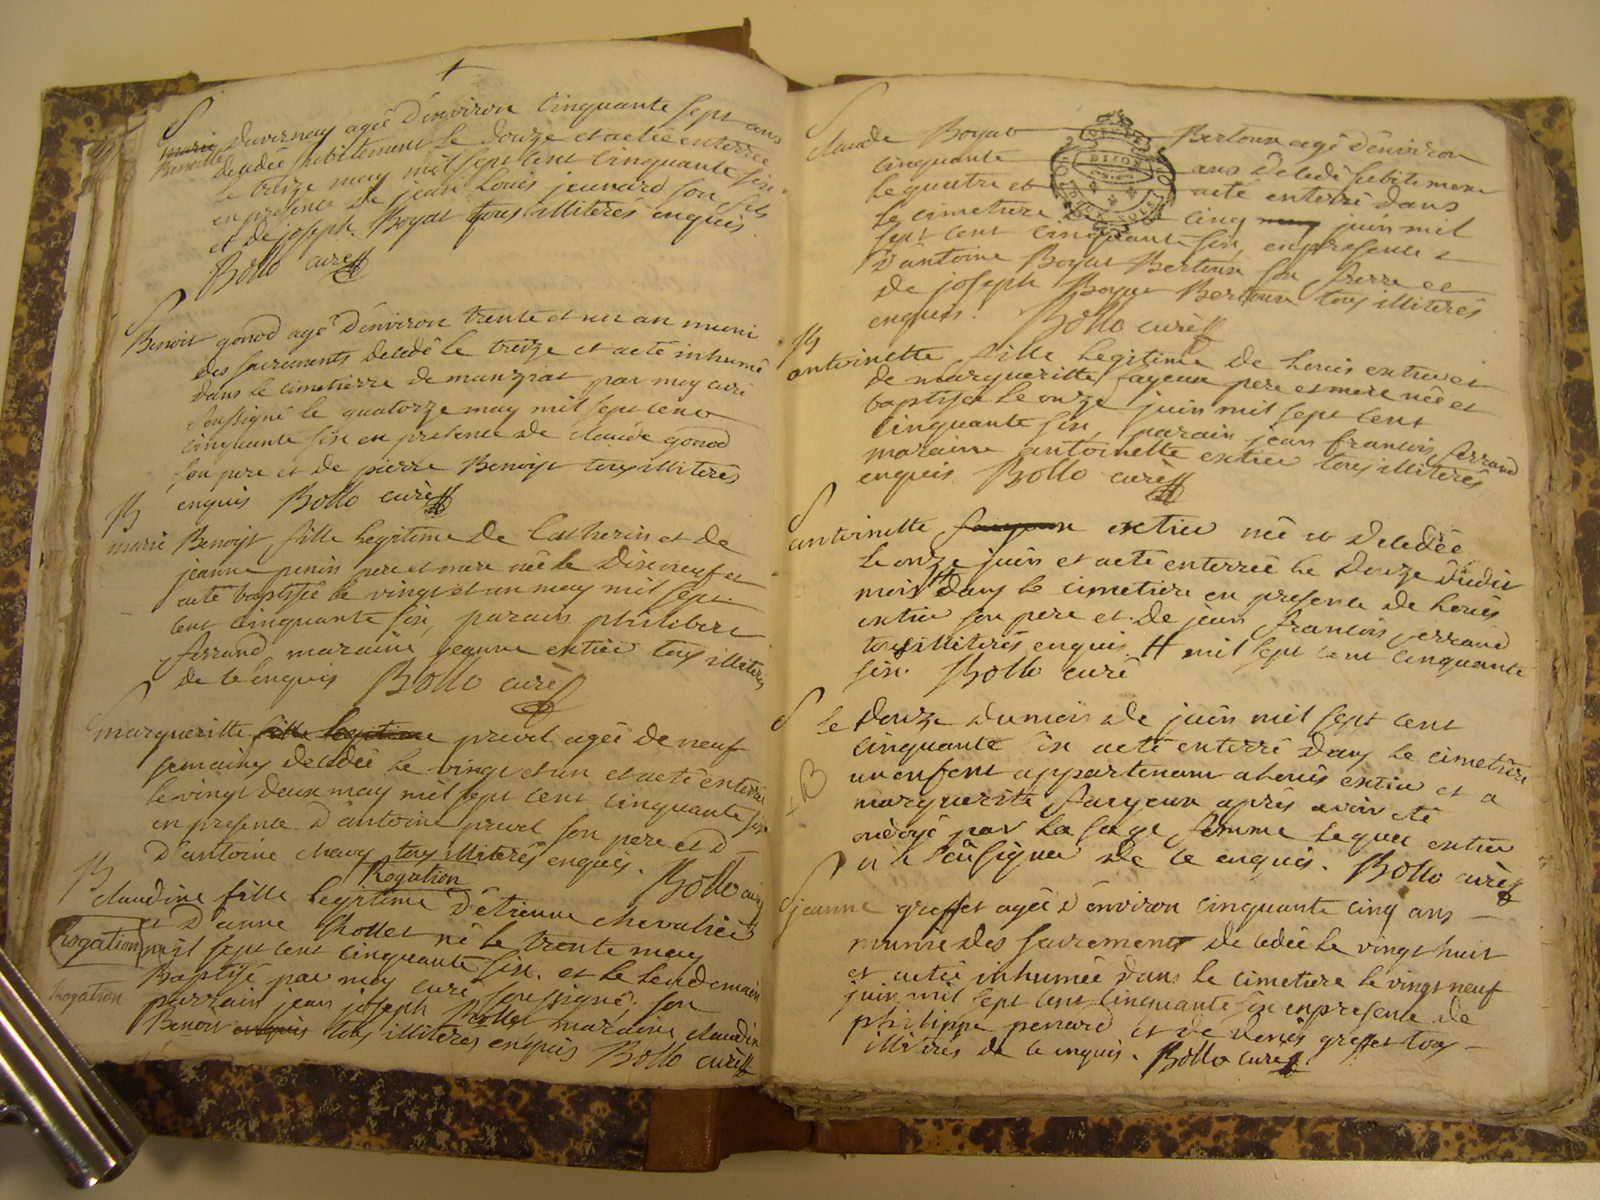 S
Benoitte duvernay agée d'environ cinquante sept ans
decedée subitement le douze et a eté enterrée
le treize may mil sept cent cinquante six
en presence de jean Louis jeunard son fils
et de joseph Boyat tous illiterés enquis.
Bollo curé
S
Benoit gonod agé d'environ trente et un an muni
des sacrements decedé le treize et a eté inhumé
dans le cimetierre de manziat par moy curé
soussigné le quatorze may mil sept cent
cinquante six en presence de claude gonod
son pere et de pierre Benoist tous illiterés
enquis Bollo curé
B
marie Benoist fille legitime de Catherin et de
jeanne penin pere et mere née le dixneuf et
a eté baptisée le vingt et un may mil sept
cent cinquante six, parain philibert
ferrand maraine jeanne extier tous illiterés
de ce enquis Bollo curé
S
margueritte fille legitime privet agée de neuf
semaines decedée le vingt et un et a eté enterrée
le vingt deux may mil sept cent cinquante six
en presence d'antoine privet son pere et d
d'antoine chavy tous illiterés enquis. Bollo curé
B
Rogation
claudine fille legitime d'etienne chevalier
et d'anne Rollet né le trente may
Rogation mil sept cent cinquante six. et le lendemain
Rogation Baptisé par moy curé soussigné. son
parrain jean joseph Rollet maraine claudine
Benoit enquis tous illiteres enquis Bollo curé
S
claude Boyat Bertoux agé d'environ
cinquante ans decedé subitement
le quatre et a eté enterré dans
le cimetiere le cinq may juin mil
sept cent cinquante six, en presence
d'antoine Boyat Bertoux son frere et
de joseph Boyat Bertoux tous illiterés
enquis. Bollo curé
B
antoinette fille legitime de Louis extier et
de margueritte fayeux pere et mere née et
baptisée le onze juin mil sept cent
cinquante six, parain jean francois ferrand
maraine antoinette extier tous illiterés
enquis Bollo curé
S
antoinette extier née et decedée
le onze juin et a eté enterrée le douze dudit
mois # dans le cimetiere en presence de Louis
extier son pere et de jean francois ferrand
tous illiterés enquis # mil sept cent cinquante
six. Bollo curé
S
le douze du mois de juin mil sept cent
cinquante six a eté enterré dans le cimetiere
+ B un enfent appartenant a Louis extier et a
margueritte fayeux aprés avoir eté
ondoyé par la sage femme lequel extier
n'a sousigner de ce enquis. Bollo curé
S
jeanne greffet agée d'environ cinquante cinq ans
munie des sacrements decedée le vingt huit
et a etée inhumée dans le cimetiere le vingt neuf
juin mil sept cent cinquante six en presence de
philippe penard et de denis greffet tous
illiterés de ce enquis. Bollo curé